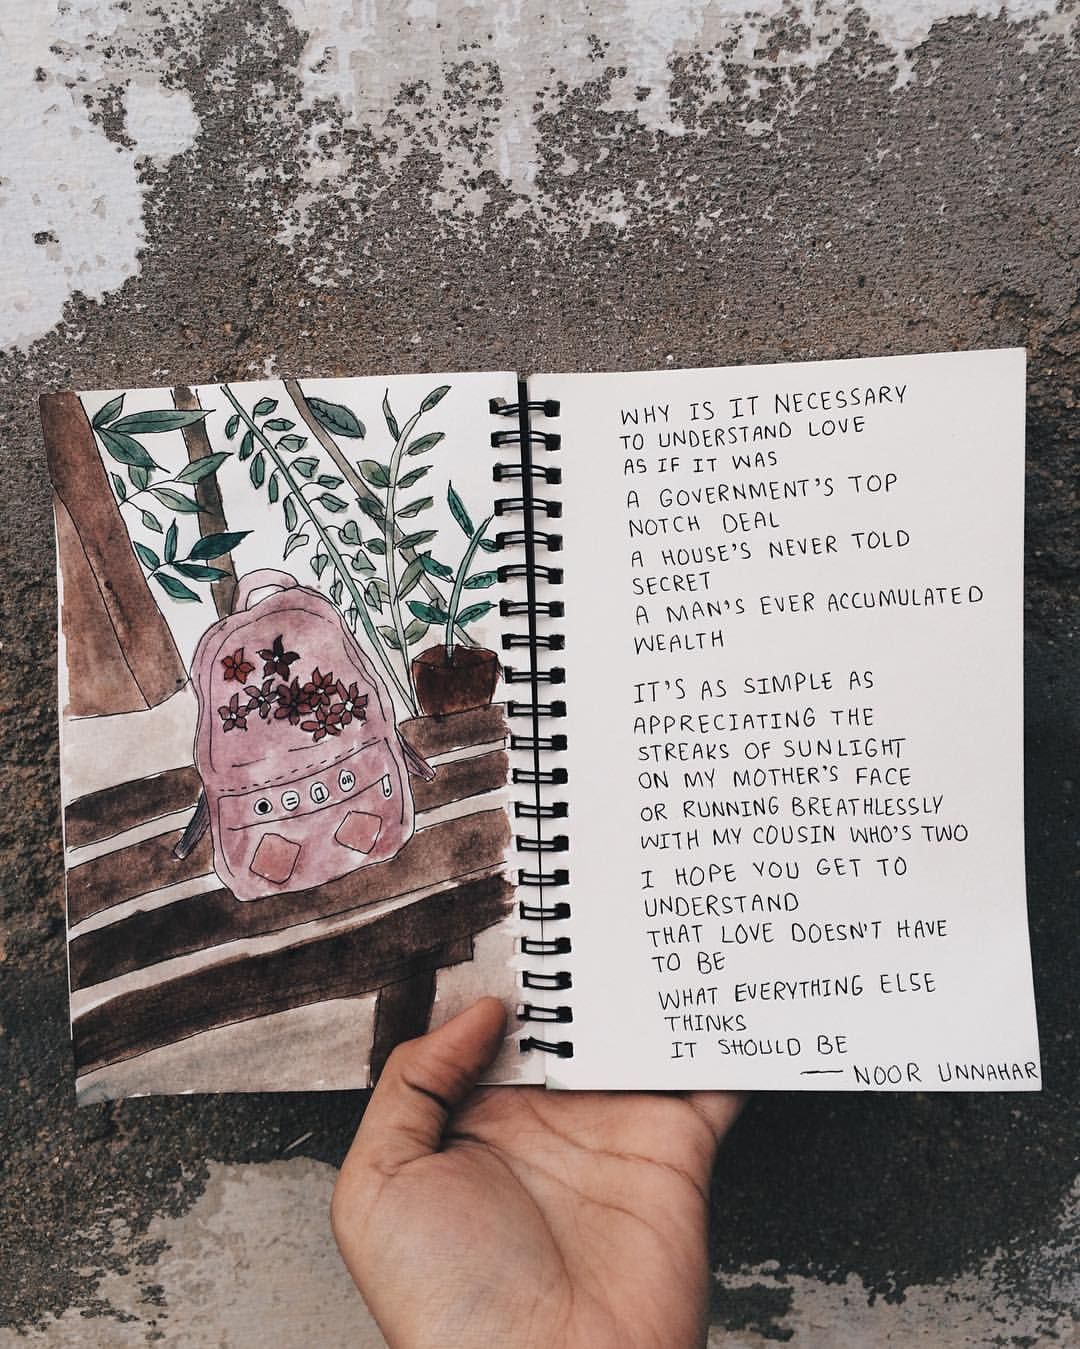 OR
WHY IS IT NECESSARY
TO UNDERSTAND LOVE
AS IF IT WAS
A GOVERNMENT'S TOP
NOTCH DEAL
A HOUSE'S NEVER TOLD
SECRET
A MAN'S EVER ACCUMULATED
WEALTH
IT'S AS SIMPLE AS
APPRECIATING THE
STREAKS OF SUNLIGHT
ON MY MOTHER'S FACE
OR RUNNING BREATHLESSLY
WITH MY COUSIN WHO'S TWO
I HOPE YOU GET TO
UNDERSTAND
THAT LOVE DOESN'T HAVE
TO BE
WHAT EVERYTHING ELSE
THINKS
IT SHOULD BE
— NOOR UNNAHAR